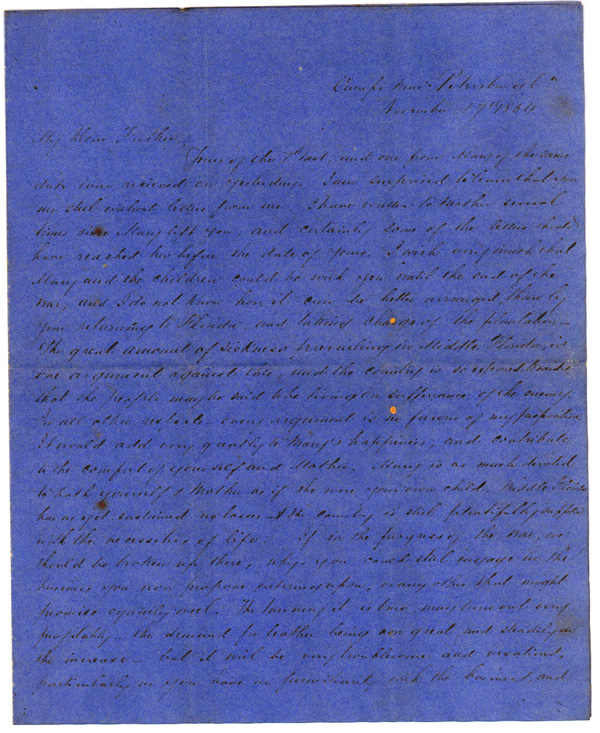 Camp near Petersburg Va
November 17th 1864
My Dear Father,
Yours of the 1st Inst, and one from Mary of the same
date were recieved on yesterday. I am surprised to learn that you
are still without letters from me. I have written to Mother several
times since Mary left you, and certainly some of the letters should
have reached her before the date of yours. I wish very much that
Mary and the children could be with you until the end of the
war, and I do not know how it can be better arranged, than by
your returning to Florida and taking charge of the plantation—
The great amount of sickness prevailing in Middle Florida, is
one argument against this, and the country is so exposed to raids
that the people may be said to be living on sufferance of the enemy.
In all other respects every argument is in favour of my proposition
It would add very greatly to Mary's happiness, and contribute
to the comfort of yourself and Mother. Mary is as much devoted
to both yourself & Mother as if she were your own child. Middle Florida
has as yet sustained no losses & the country is still plentifully supplied
with the necessities of life. If in the progress of the war, we
should be broken up there, why you could still engage in the
business you now propose entering upon, or any other that might
promise equally well. The tanning it is true, may turn out very
profitably— the demand for leather being now great and steadily on
the increase— but it will be very troublesome and vexatious,
particularly as you have no familiarity with the business, and